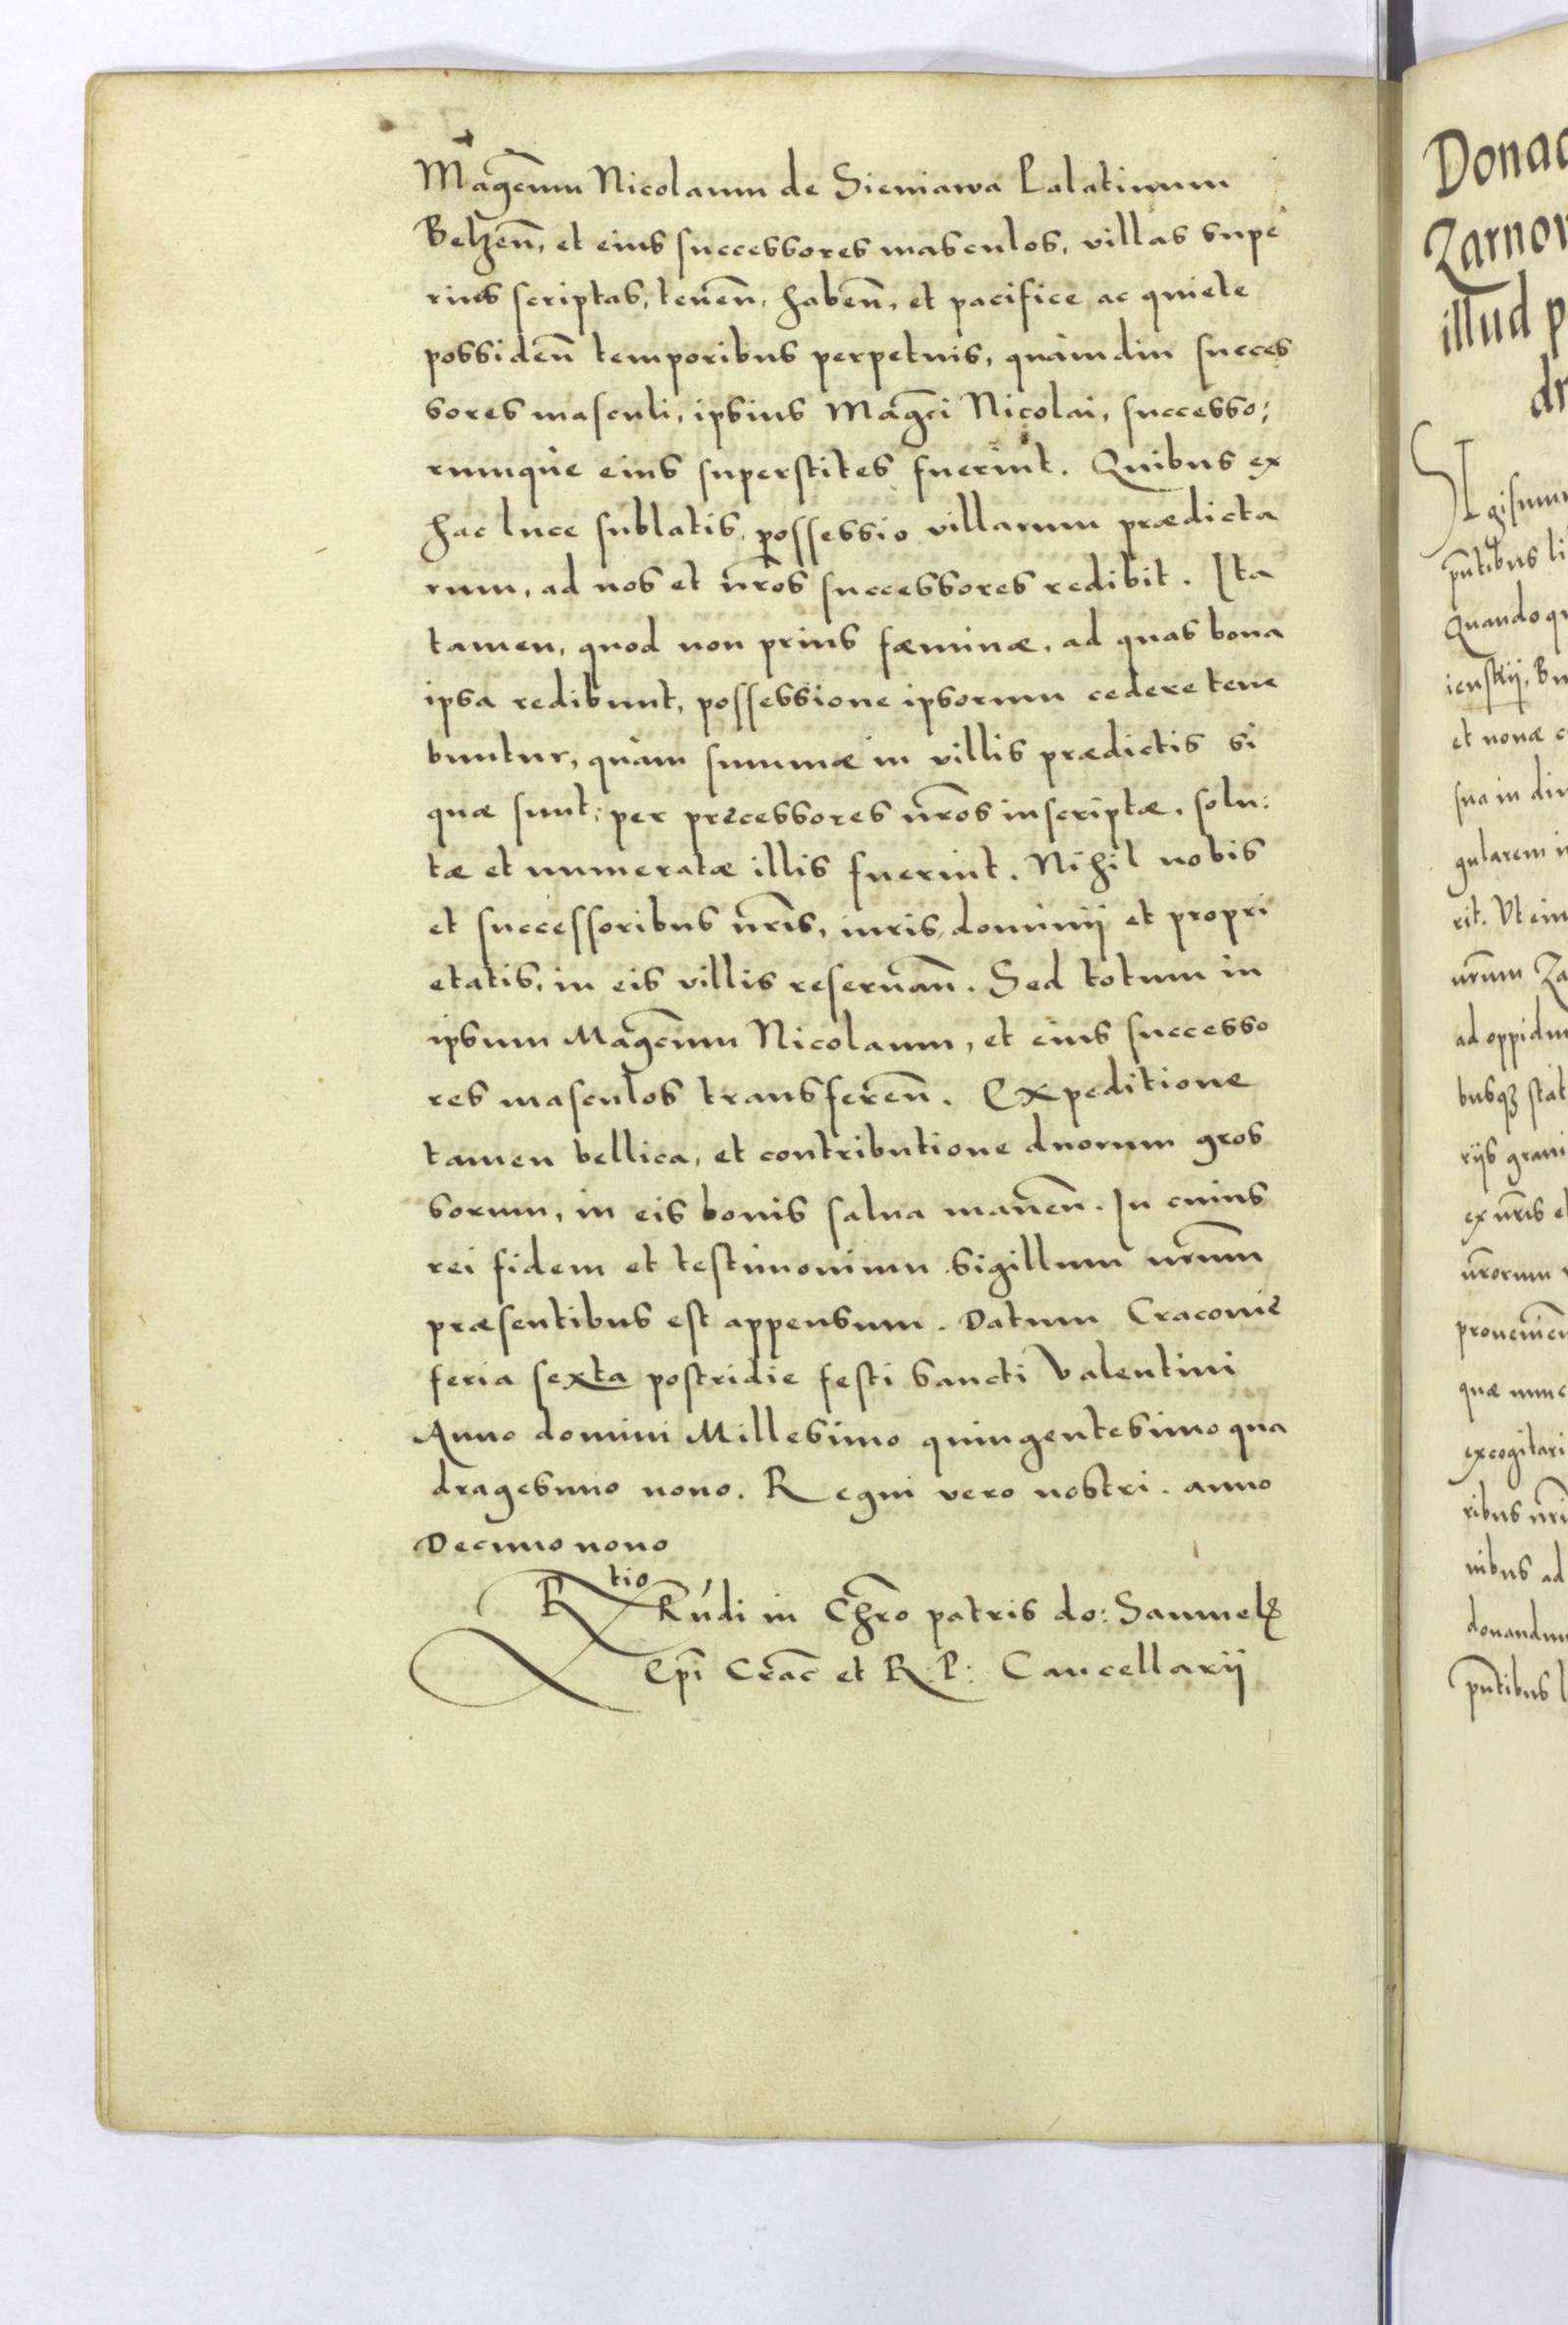 Magc̃um Nicolaum de Sieniawa Palatinum
Belzeñ, et eius successores masculos, villas supe
rius scriptas, teneñ, habeñ, et pacifice ac quiete
possideñ temporibus perpetuis, quàmdiu succes
sores masculi, ipsius Magc̃i Nicolai, successo:
rumque eius superstites fuerint. Quibus ex
hac luce sublatis, possessio villarum prædicta
rum, ad nos et nr̃os successores redibit. Ita
tamen, quod non prius fæminæ, ad quas bona
ipsa redibunt, possessione ipsorum cedere tene
buntur, quàm summæ in villis prædictis si
quæ sunt, per prȩcessores nr̃os inscriptæ, solu:
tæ et numeratæ illis fuerint. Nihil nobis
et successoribus nr̃is, iuris, dominij et propri
etatis, in eis villis reseruañ. Sed totum in
ipsum Magc̃um Nicolaum, et eius successo
res masculos transfereñ. Expeditione
tamen bellica, et contributione duorum gros
sorum, in eis bonis salua maneñ. In cuius
rei fidem et testimonium sigillum nr̃um
præsentibus est appensum. Datum Cracouiȩ
feria sexta postridie festi sancti Valentini
Anno domini Millesimo quingentesimo qua
dragesimo nono. Regni vero nostri anno
Decimo nono
Rtio Rñdi in Chr̃o patris do: Samuelis
Epĩ Crac̃ et R. P: Cancellarij
Donac
Zarnow
illud p
Sigismun
pñtibus li
Quandoqu
ienskij, Bu
et nonæ c
sua in di
gularem i
rit. Ut eiu
nr̃um Za
ad oppidu
busqꝫ stat
rijs graui
ex nr̃is e
nr̃orum
proueniẽ
quæ nunc
excogitari
ribus nr̃i
nibus ad
donandu
pñtibus l